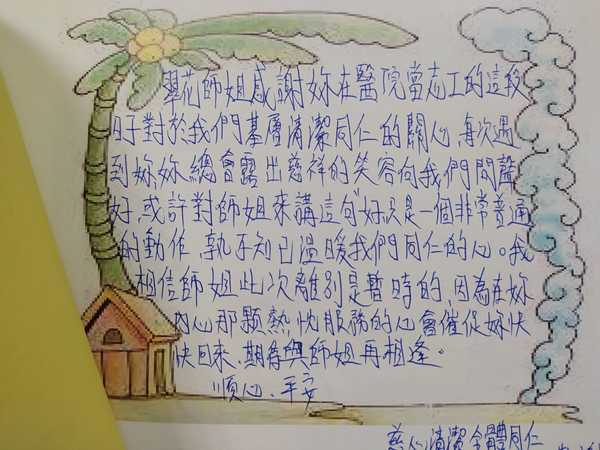 翠花師姐感謝妳在醫院當志工的這段
日子對於我們基層清潔同仁的關心,每次遇
到妳,妳總會露出慈祥的笑容向我們問聲
好,或許對師姐來講這句"好"只是一個非常普通
的動作,孰不知已溫暖我們同仁的心。我
相信師姐此次離別是暫時的,因為在妳
內心那顆熱忱服務的心會催促妳快
快回來,期待與師姐再相逢。
順心、平安
慈心清潔全體同仁